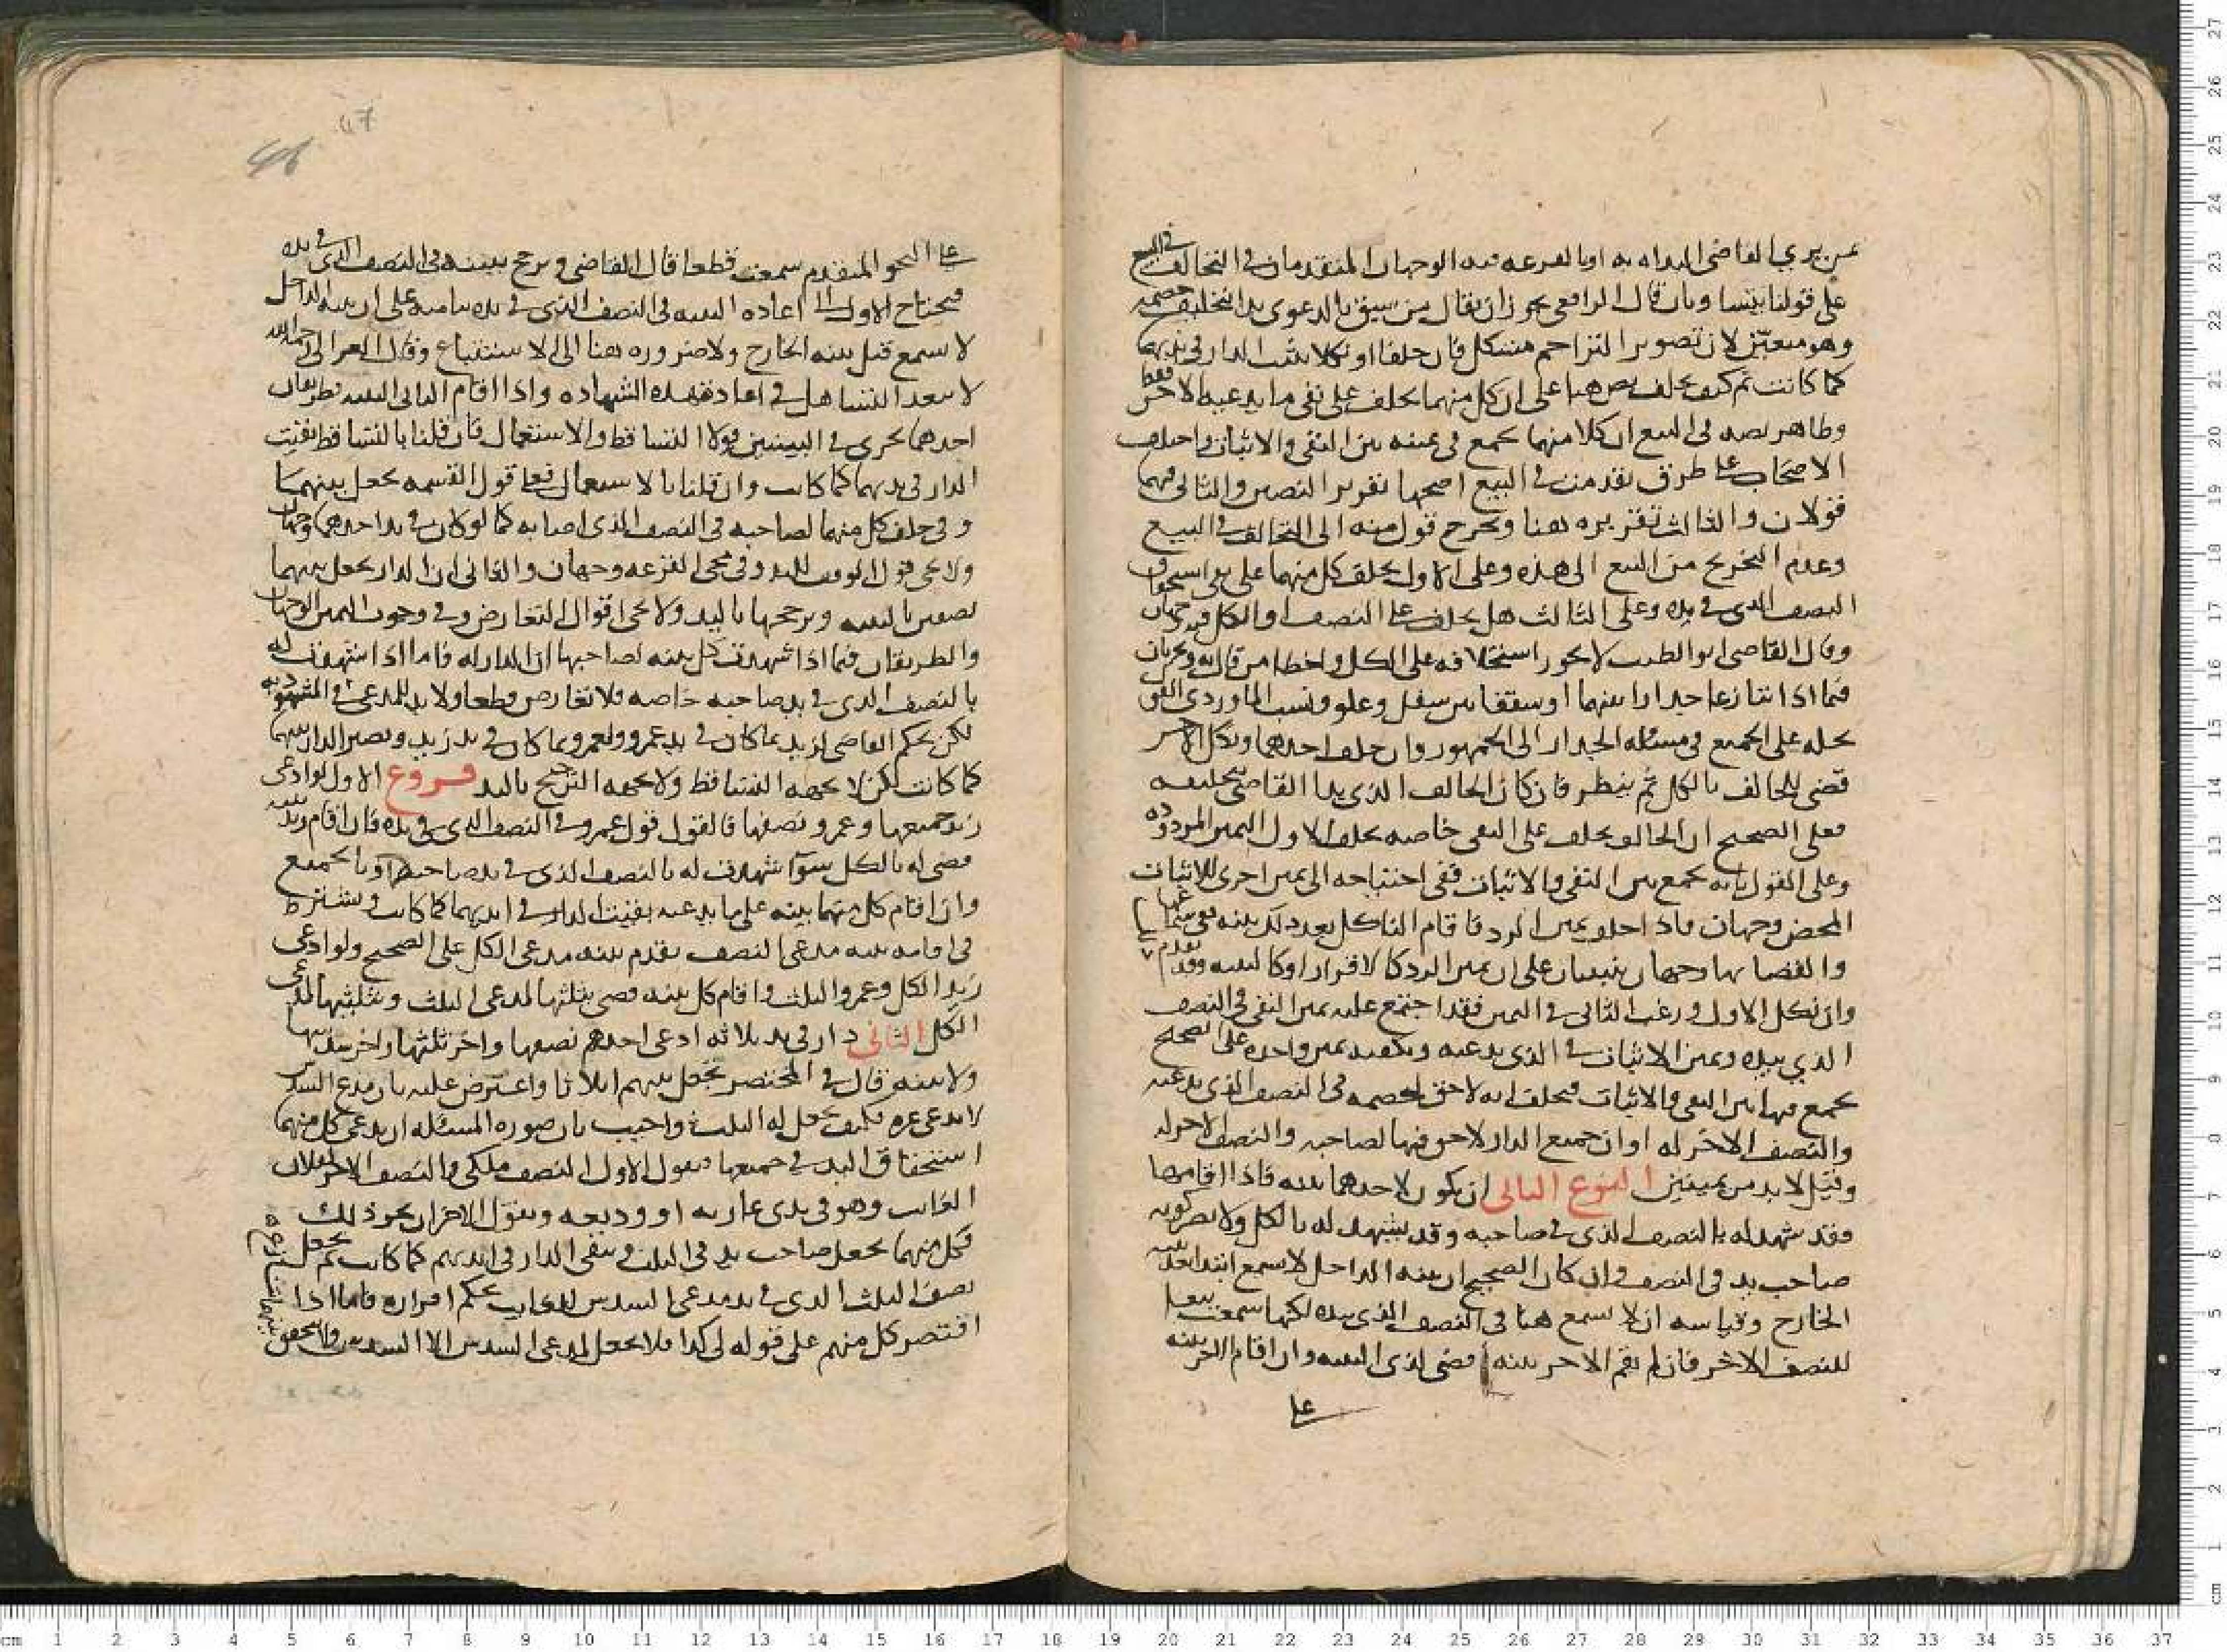 من يرى القاضى البداه به او بالقرعه فيه الوجهان المتقدمان في التحالف في البيع
على قولنا يتساويان قال الرافعى يجوز ان يقال من سبق بالدعوى بدا بتحليف خصمه
وهو متعين لان تصوير التزاحم مشكل فان حلفا او نكلا بقيت الدار في يديهما
كما كانت ثم كيف يحلف نص هنا على ان كل منهما يحلف على نفى ما يدعيه الاخر فقط
وظاهر نصه في البيع ان كلا منهما يجمع في يمينه بين النفى والاثبات واختلف
الاصحاب على طرق تقدمت في البيع اصحها تقرير النصين والثانى فيهما
قولان والثالث تقريره هنا وتخرج قول منه الى التحالف في البيع
وعدم التخريج من البيع الى هذه وعلى الاول يحلف كل منهما على نفى استحقاق
النصف الذى في يده وعلى الثالث هل يحلف على النصف او الكل فيه وجهان
وقال القاضى ابو الطيب لا يجوز استحلافه على الكل واخطا من قال به ويجريان
فيما اذا تنازعا جدارا بينهما او سقفا بين سفل وعلو ونسب الماوردى القول
بحلفه على الجميع في مسئله الجدار الى الجمهور وان حلف احدهما ونكل الاخر
قضى للحالف بالكل ثم ينظر فان كان الحالف الذى بدا القاضى بتحليفه
فعلى الصحيح ان الحالف يحلف على النفى خاصه يحلف الاول اليمين المردوده
وعلى القول بانه يجمع بين النفى والاثبات ففى احتياجه الى يمين اخرى للاثبات
المحض وجهان فاذا حلف يمين الرد فاقام الناكل بعد ذلك بينه ففى سماعها
والقضا بها وجهان ينبنيان على ان يمين الرد كالاقرار او كالبينه وقد تقدم
وان نكل الاول ورغب الثانى في اليمين فقد اجتمع عليه يمين النفى في النصف
الذي بيده ويمين الاثبات في الذى يدعيه ويكفيه يمين واحده على الصحيح
يجمع فيها بين النفى والاثبات فيحلف انه لا حق لخصمه في النصف الذى يدعيه
والنصف الاخر له او ان جميع الدار لا حق فيها لصاحبه والنصف الاخر له
وقيل لا بد من يمينين النوع الثانى ان يكون لاحدهما بينه فاذا اقامها
وقد شهد له بالنصف الذى في صاحبه وقد يشهد له بالكل ولا يضر كونه
صاحب يد في النصف وان كان الصحيح ان بينه الداخل لا تسمع ابتدا قبل بينه
الخارج وقياسه ان لا تسمع هنا في النصف الذى بيده لكنها سمعت تبعا
للنصف الاخر فان لم يقم الاخر بينه قضى لذى البينه وان اقام الاخر بينه
على
على النحو المتقدم سمعت قطعا قال القاضى وترجح بينته في النصف الذى في يده
فيحتاج الاول الى اعاده البينه في النصف الذى في يده بنا منه على ان بينه الداخل
لا تسمع قبل بينه الخارج ولا ضروره هنا الى الاستتباع وقال الغزالى رحمه الله
لا يبعد التساهل في اعاده هذه الشهاده واذا اقام الثانى البينه فطريقان
احدهما يجرى في البينتين قولا التساقط والاستعمال فان قلنا بالتساقط بقيت
الدار في يديهما كما كانت وان قلنا بالاستعمال فعلى قول القسمه يجعل بينهما
وفي حلف كل منهما لصاحبه في النصف الذى اصابه كما لو كان في يد احدهما وجهان
ولا يجى قول الوقف لليد وفي مجى القرعه وجهان والثانى ان الدار يجعل بينهما
نصفين بالبينه وترجحها باليد ولا يجى اقوال التعارض وفي وجوب اليمين الوجهان
والطريقان فيما اذا شهدت كل بينه لصاحبها ان الدار له فاما اذا شهدت له
بالنصف الذى في يد صاحبه خاصه فلا تعارض قطعا ولا يد للمدعى في المشهود به
لكن يحكم القاضى لزيد بما كان في يد عمرو ولعمرو بما كان في يد زيد وتصير الدار بينهما
كما كانت لكن لا بجهه التساقط ولا بجهه الترجيح باليد فروع الاول لو ادعى
زيد جميعها وعمرو نصفها فالقول قول عمرو في النصف الذى في يده فان اقام زيد بينه
قضى له بالكل سوا شهدت له بالنصف الذى في يد صاحبه او بالجميع
وان اقام كل منهما بينه على ما يدعيه بقيت الدار في ايديهما كما كانت ويشترط
في اقامه بينه مدعى النصف تقدم بينه مدعى الكل على الصحيح ولو ادعى
زيد الكل وعمرو الثلث واقام كل بينه قضى بثلثها لمدعى الثلث وبثلثيها لمدعى
الكل الثانى دار في يد ثلاثه ادعى احدهم نصفها واخر ثلثها واخر سدسها
ولا بينه قال في المختصر يجعل بينهم اثلاثا واعترض عليه بان مدعى السدس
لا يدعى غيره فكيف يجعل له الثلث واجيب بان صوره المسئله ان يدعى كل منهما
استحقاق اليد في جميعها فيقول الاول النصف ملكى والنصف الاخر لفلان
الغائب وهو في يدى عاريه او وديعه ويقول الاخران نحو ذلك
فكل منهما يجعل صاحب يد في الثلث وتبقى الدار في ايديهم كما كانت ثم يجعل
نصف الثلث الذى في يد مدعى السدس للغايب بحكم اقراره فاما اذا
اقتصر كل منهم على قوله لى كذا فلا يجعل لمدعى السدس الا السدس